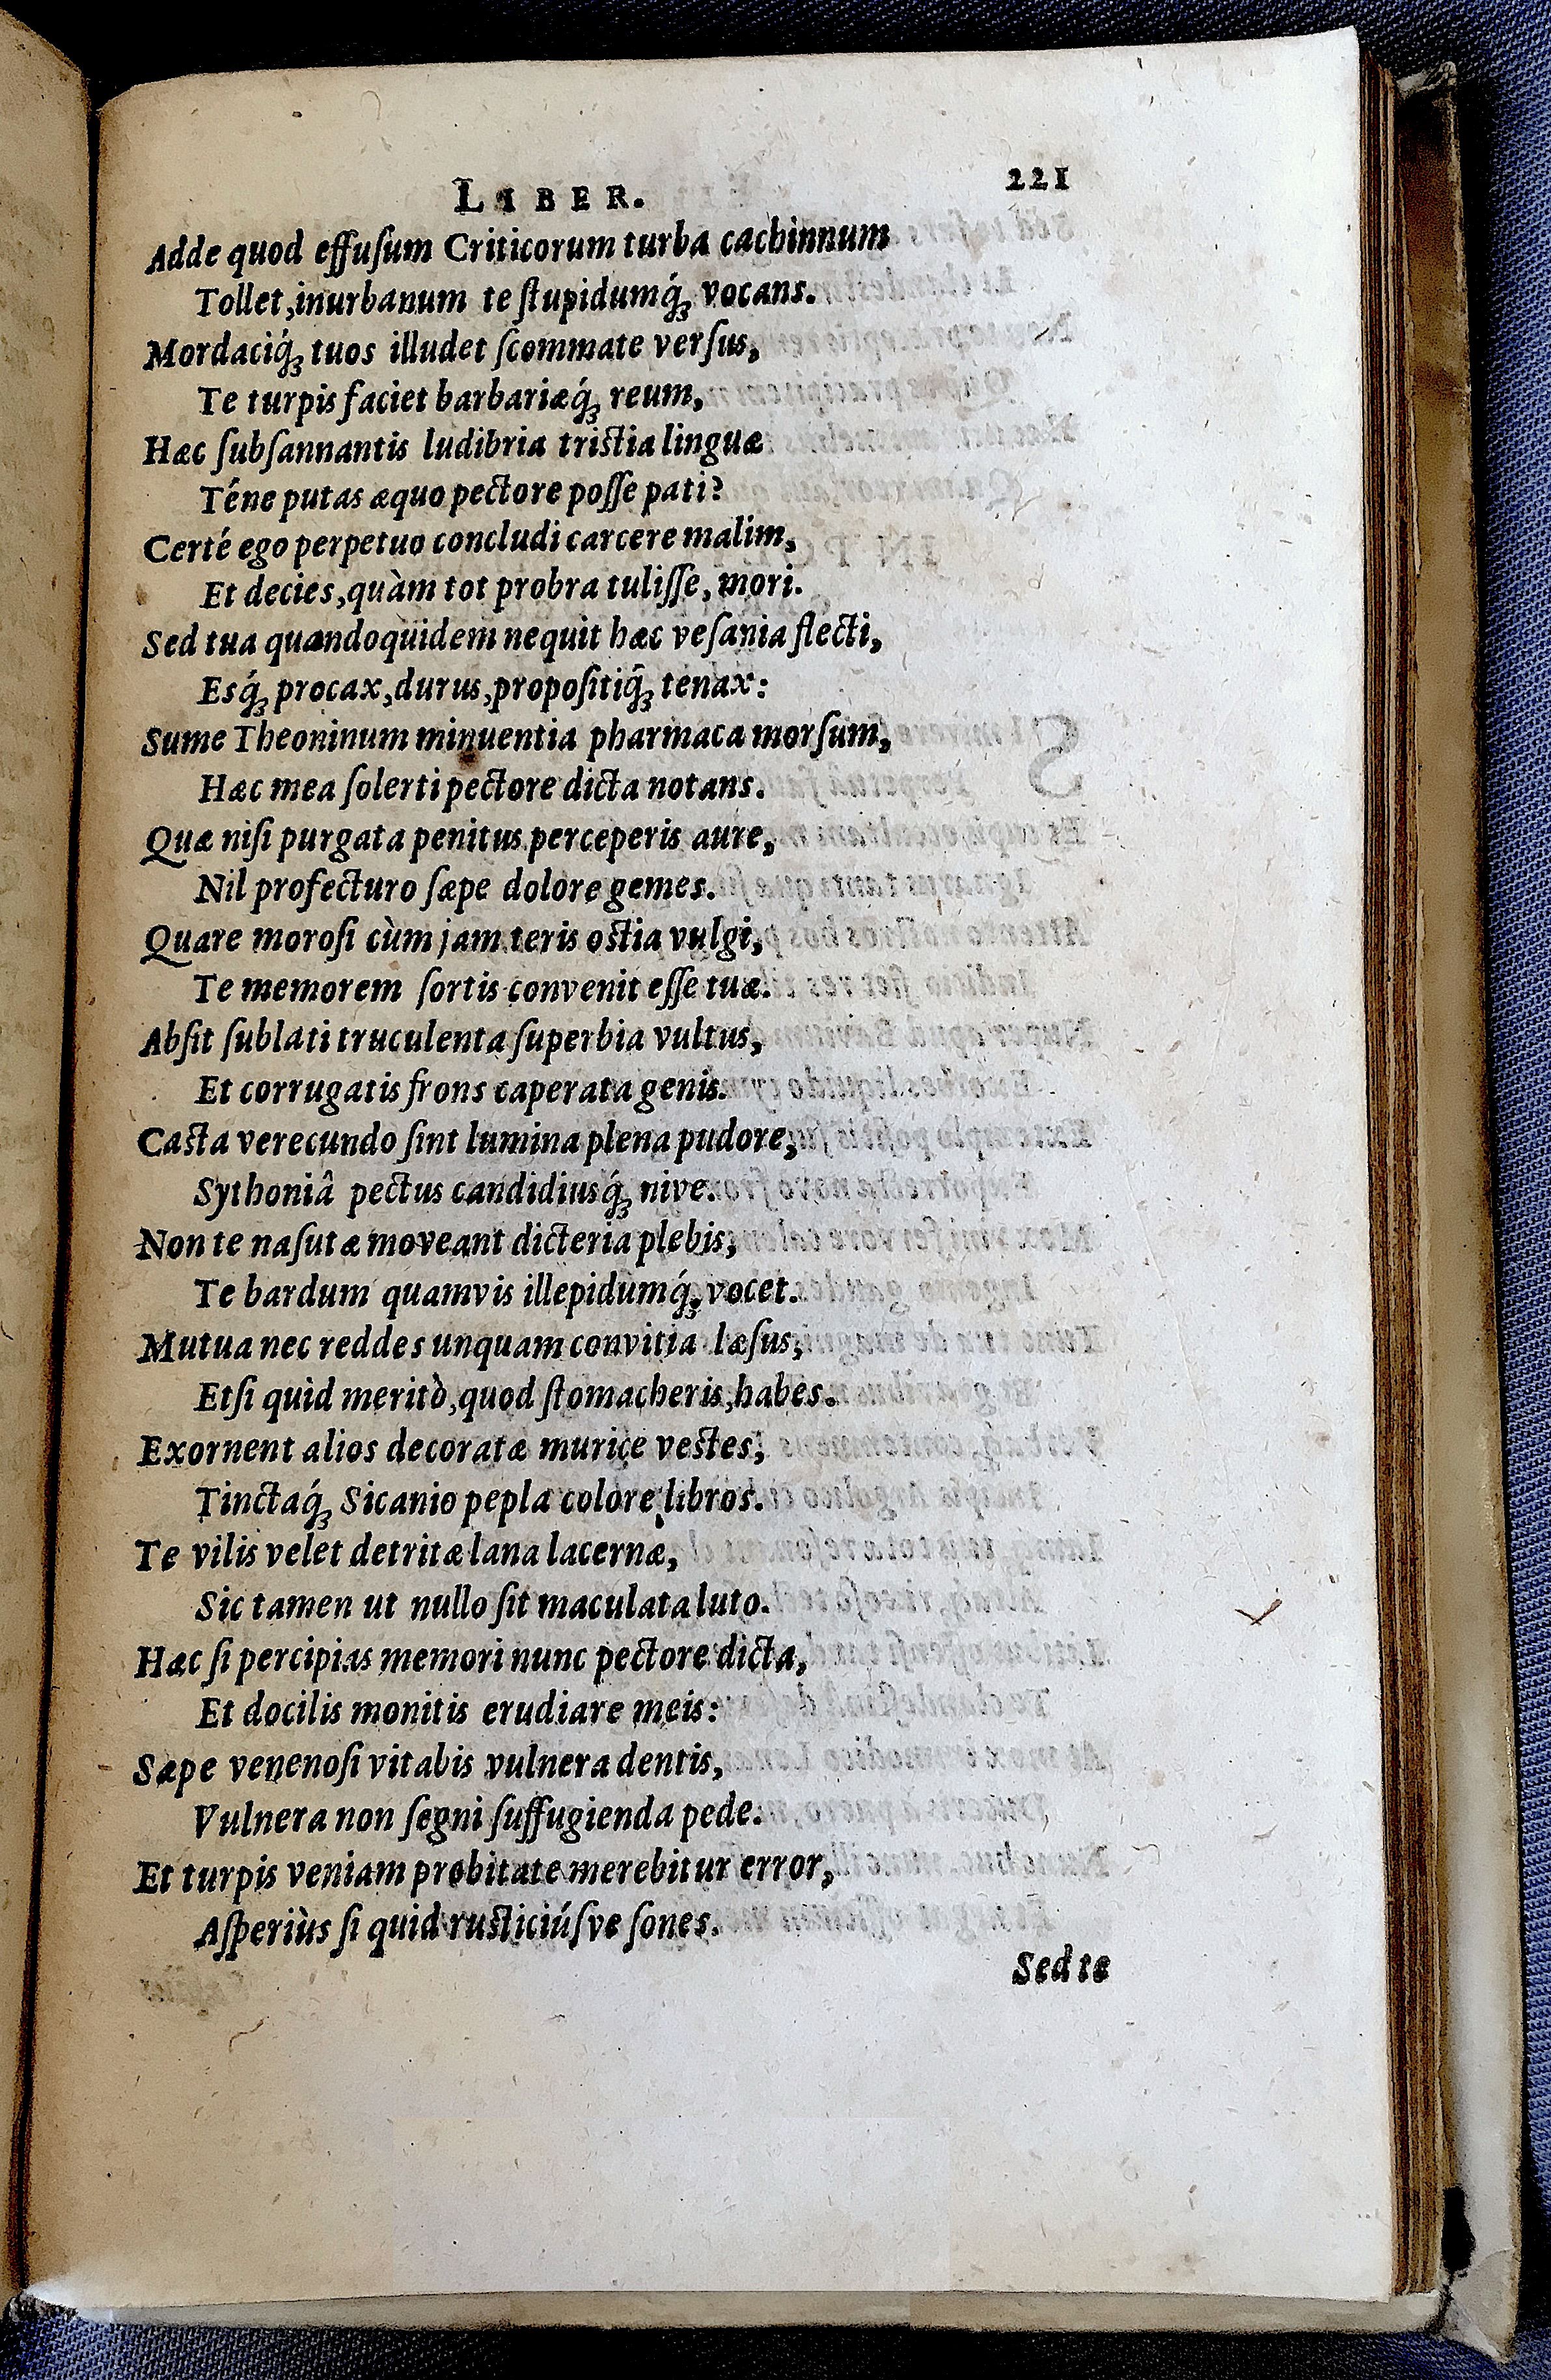 LIBER. 221
Adde quod effuſum Criticorum turba cachinnum
Tollet, inurbanum te ſtupidumq́ꝫ vocans.
Mordaciq́ꝫ tuos illudet ſcommate verſus,
Te turpis faciet barbariæq́ꝫ reum,
Hæc ſubſannantis ludibria tristia linguæ
Téne putas æquo pectore poſſe pati?
Certé ego perpetuo concludi carcere malim,
Et decies, quàm tot probra tuliſſe, mori.
Sed tua quandoquidem nequit hæc veſania flecti,
Esq́ꝫ procax, durus, propoſitiq́ꝫ tenax:
Sume Theoninum minuentia pharmaca morſum,
Hæc mea ſolerti pectore dicta notans.
Quæ niſi purgata penitus perceperis aure,
Nil profecturo ſæpe dolore gemes.
Quare moroſi cùm jam teris ostia vulgi,
Te memorem ſortis convenit eſſe tuæ.
Abſit ſublati truculenta ſuperbia vultus,
Et corrugatis frons caperata genis.
Casta verecundo ſint lumina plena pudore,
Sythoniâ pectus candidiusq́ꝫ nive.
Non te naſutæ moveant dicteria plebis,
Te bardum quamvis illepidumq́ꝫ vocet.
Mutua nec reddes unquam convitia læſus,
Etſi quid meritò, quod ſtomacheris, habes.
Exornent alios decoratæ murice vestes,
Tinctaq́ꝫ Sicanio pepla colore libros.
Te vilis velet detritæ lana lacernæ,
Sic tamen ut nullo ſit maculata luto.
Hæc ſi percipias memori nunc pectore dicta,
Et docilis monitis erudiare meis:
Sæpe venenoſi vitabis vulnera dentis,
Vulnera non ſegni ſuffugienda pede.
Et turpis veniam probitate merebitur error,
Aſperiùs ſi quid rusticiúſve ſones.
Sed te